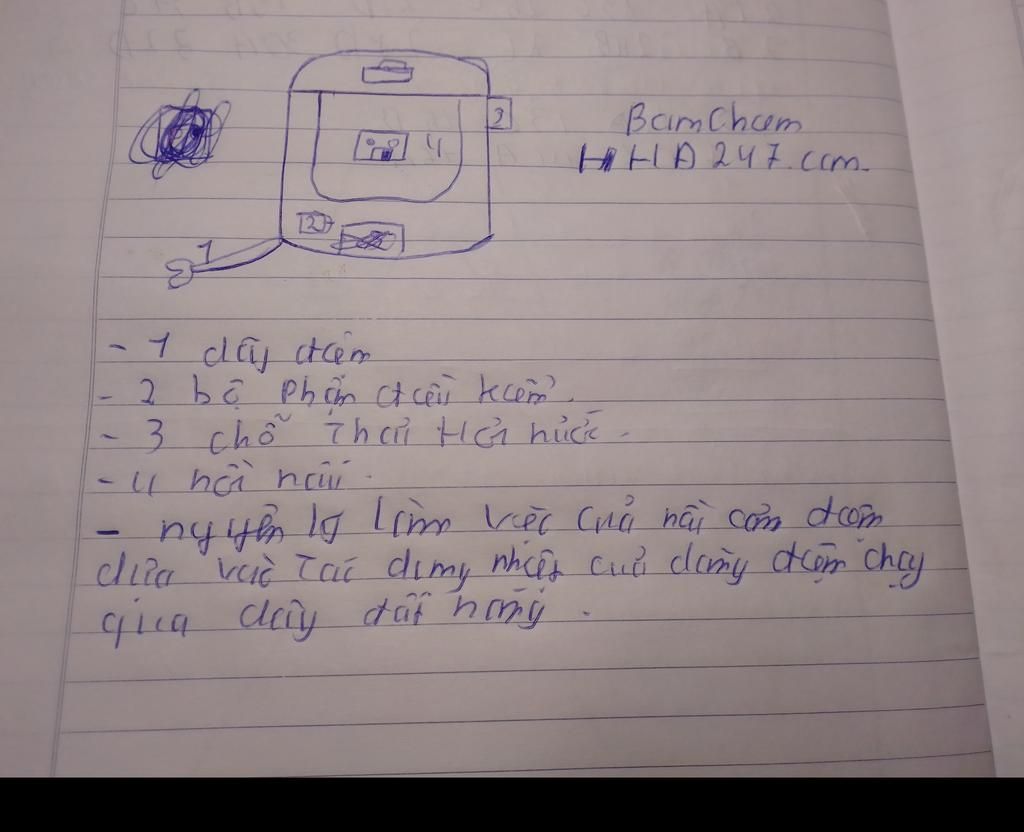 3
BamCham
HHD247.com.
4
2
1
- 1 dây điện
- 2 bộ phận điều kiển.
- 3 chỗ thoát Hơi nước.
- 4 nồi nấu.
- nguyên lý làm việc của nồi cơm điện
dựa vào Tác dụng nhiệt của dòng điện chạy
qua dây đốt nóng.